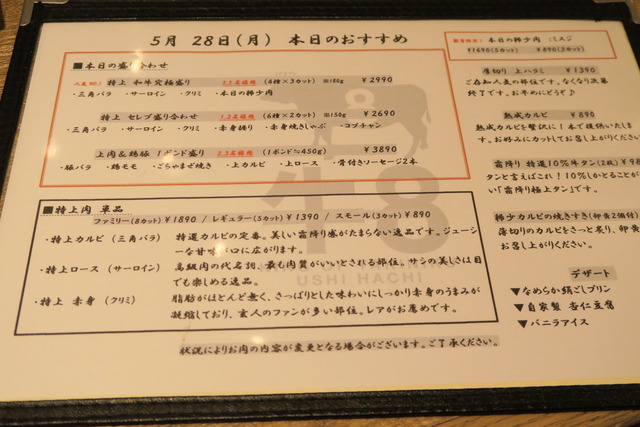 5月 28日(月) 本日のおすすめ
■本日の盛り合わせ
特上 和牛究極盛り 2,3名様用 (4種×3カット) ※180g ¥2990
・三角バラ ・サーロイン ・クリミ ・本日の希少肉
特上 セレブ盛り合わせ 1,2名様用 (6種×2カット) ※150g ¥2690
・三角バラ ・サーロイン ・クリミ ・赤身握り ・赤身焼きしゃぶ ・コプチャン
上肉&鶏豚 1ポンド盛り 2,3名様用 (1ポンド≒450g) ¥3890
・豚バラ ・鶏モモ ・ごちゃまぜ焼き ・上カルビ ・上ロース ・骨付きソーセージ2本
■特上肉 単品
ファミリー(8カット)¥1890 / レギュラー(5カット)¥1390 / スモール(3カット)¥890
・特上カルビ (三角バラ) 特選カルビの定番。美しい霜降り感がたまらない逸品です。ジューシ
ーな甘味が口に広がります。
・特上ロース (サーロイン) 高級肉の代名詞、最も肉質がいいとされる部位。サシの美しさは目
でも楽しめる逸品。
・特上 赤身 (クリミ) 脂肪がほとんど無く、さっぱりとした味わいにしっかり赤身のうまみが
凝縮しており、玄人のファンが多い部位。レアがお薦めです。
牛8
USHI HACHI
状況によりお肉の内容が変更となる場合がございます。ご了承ください。
本日の希少肉 :ミスジ
¥1690(5カット) ¥890(3カット)
厚切り 上ハラミ ¥1390
ご存知人気の部位です。なくなり次第
終了です。お早めにどうぞ♪
熟成カルビ ¥890
熟成カルビを贅沢に1本で提供いたしま
す。お好みにカットしてお召し上がりください
霜降り 特選10%牛タン(2枚) ¥98
タンと言えばこれ!10%しかとることが
い「霜降り極上タン」です。
希少カルビの焼きすき(卵黄2個付
薄切りのカルビをさっと炙り、卵黄
お召し上がりください。
デザート
▼なめらか絹ごしプリン
▼自家製 杏仁豆腐
▼バニラアイス